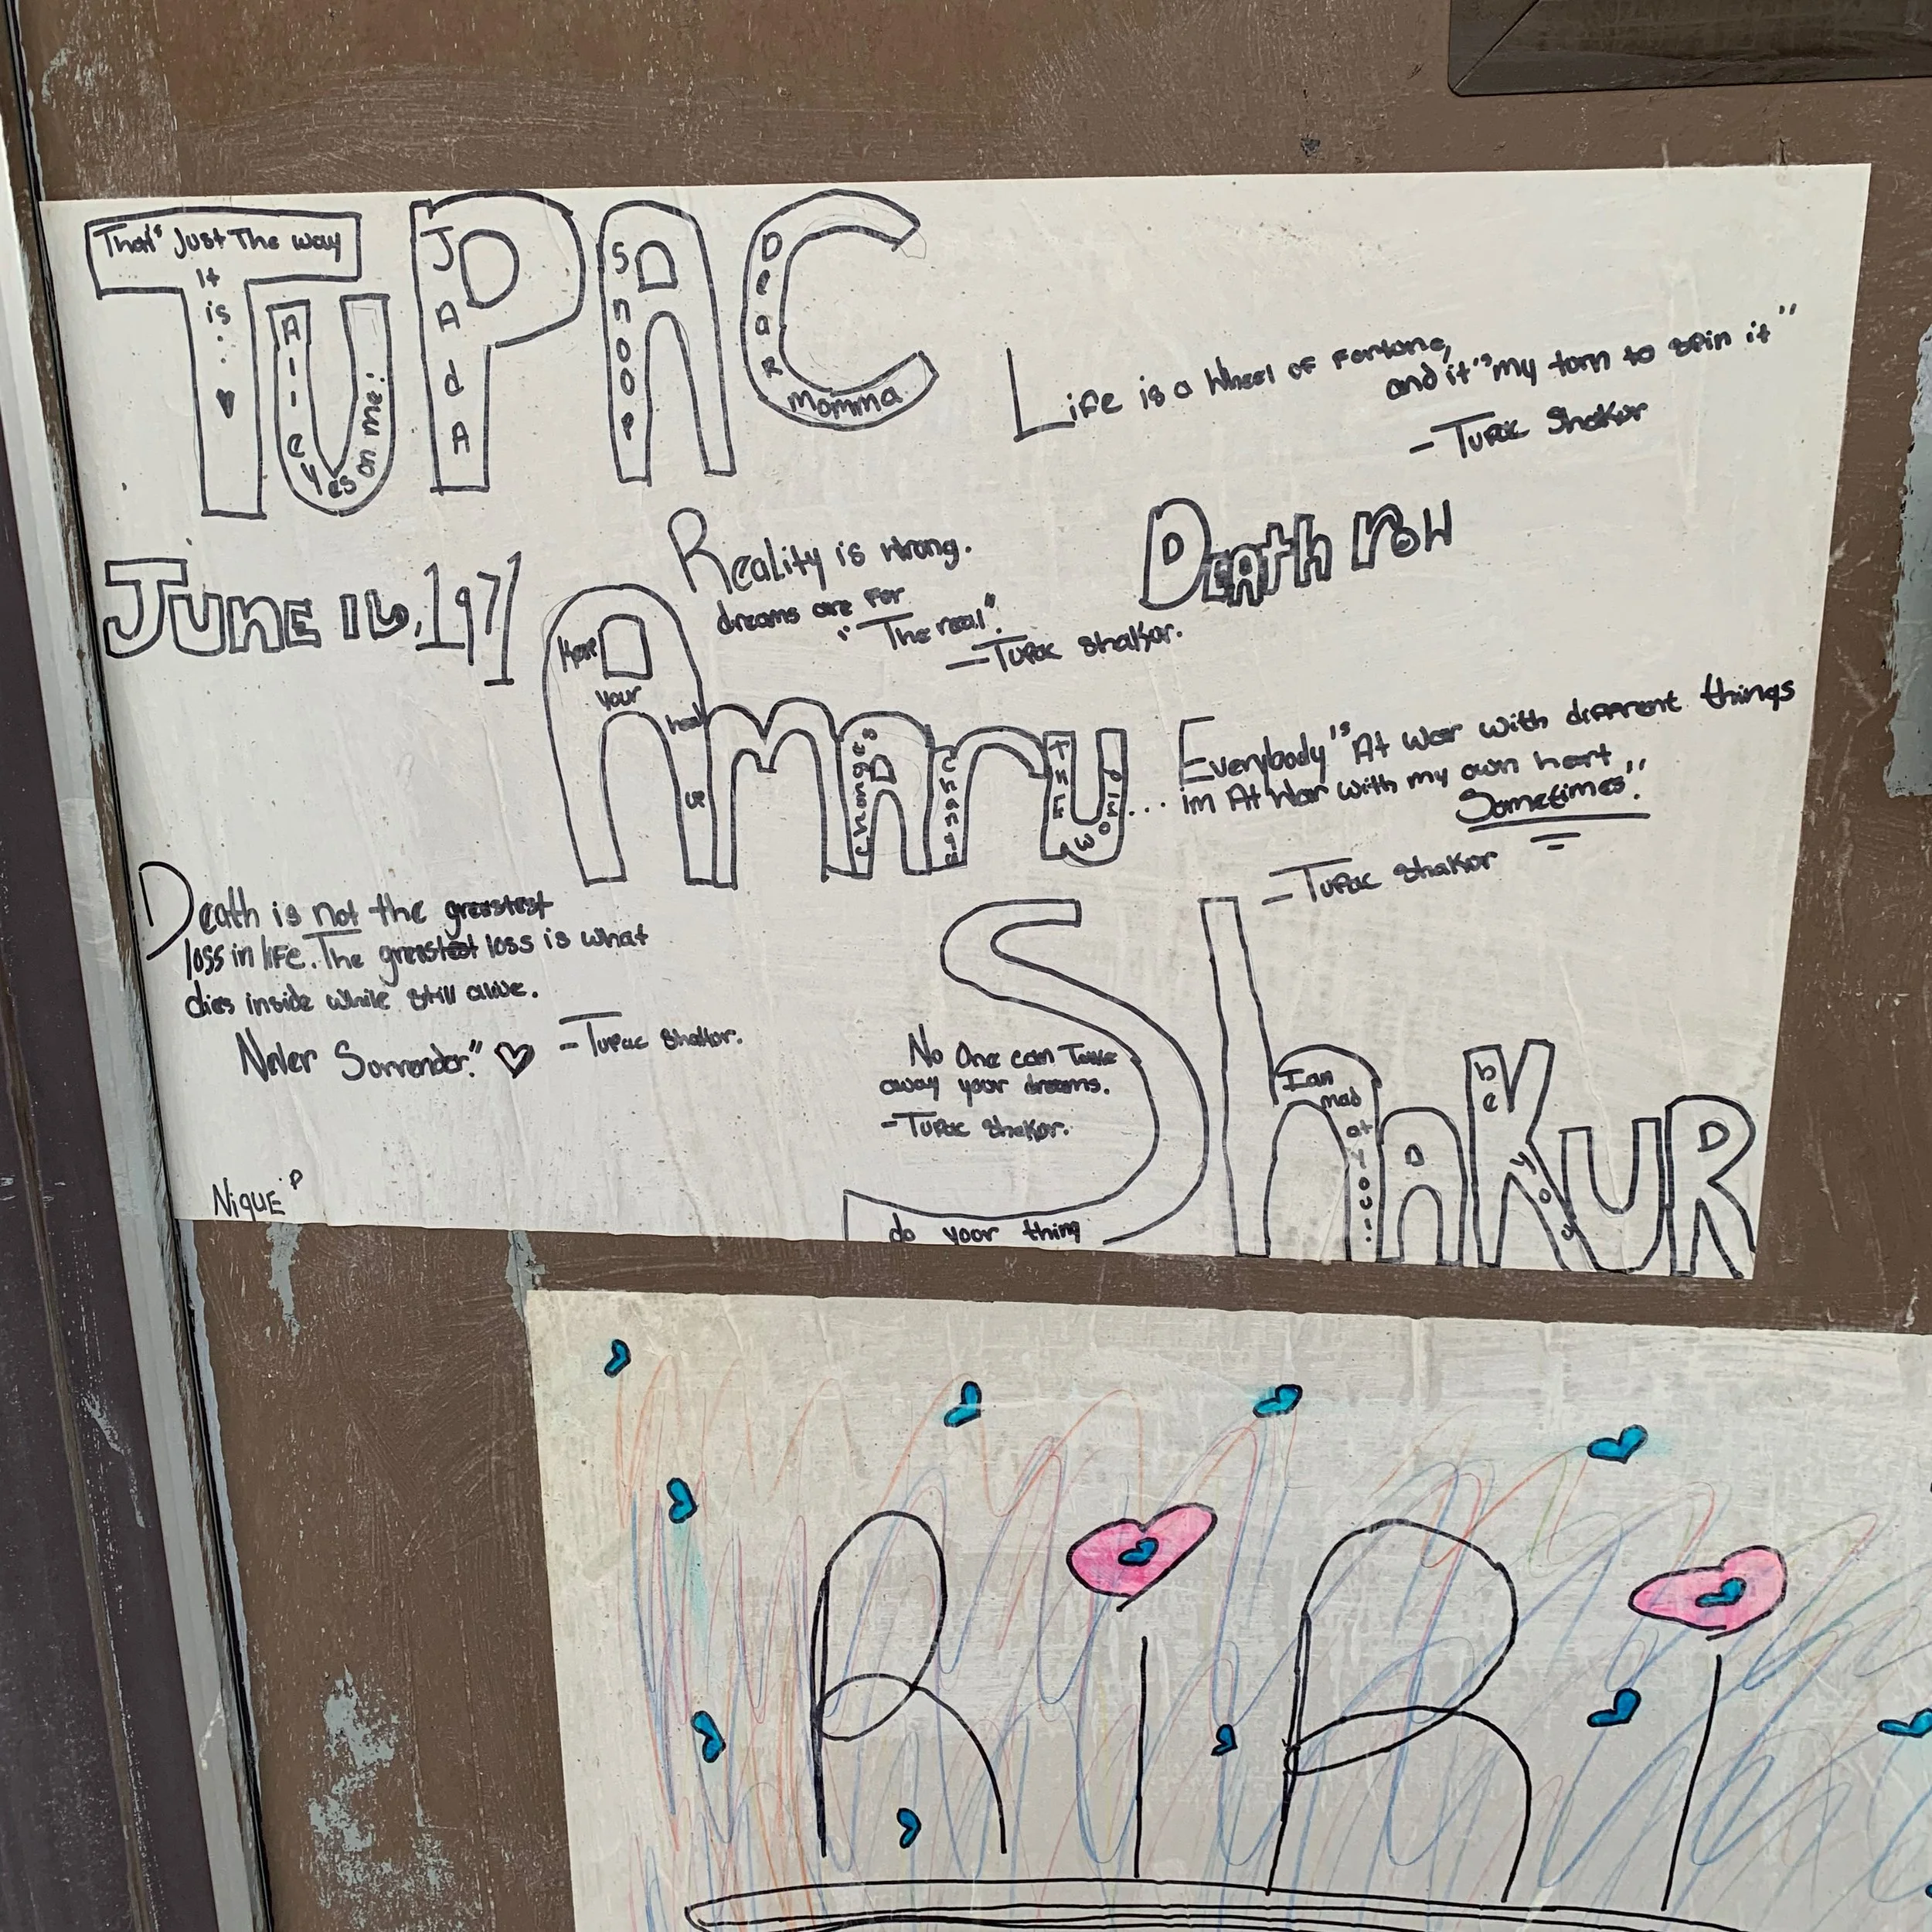 TUPAC
That's Just The way
It
is...
All eyes on me!
JAdA
Snoop
Dear momma
Life is a Wheel of Fortune,
and it's my turn to spin it"
- Tupac Shakur
Reality is wrong.
dreams are for
"The real".
- Tupac Shakur.
Death row
JUNE 16, 1971
Amaru
Keep
your
head
Changes
Thug
Everybody's At War with different things
... im At War with my own heart
Sometimes".
- Tupac Shakur
Death is not the greatest
loss in life. The greatest loss is what
dies inside while still alive.
Never Surrender."
- Tupac Shakur.
No One can Take
away your dreams.
- Tupac Shakur.
ShAKUR
I an
mad
at
you...
be
you
do your thing
NIQUE P
RiRi